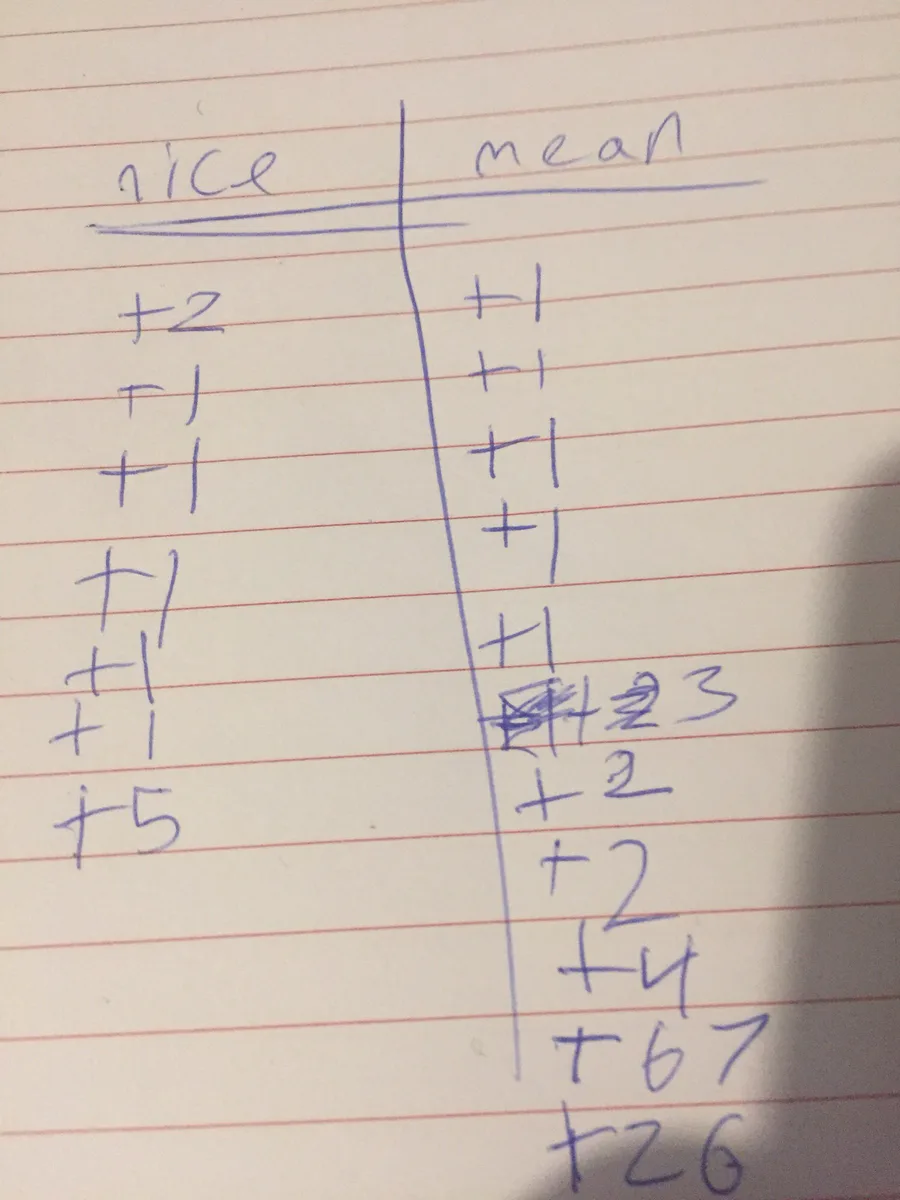 nice mean
+2 +1
+1 +1
+1 +1
+1 +1
+1 +1
+1 + 3
+5 +2
+2
+4
+67
+26